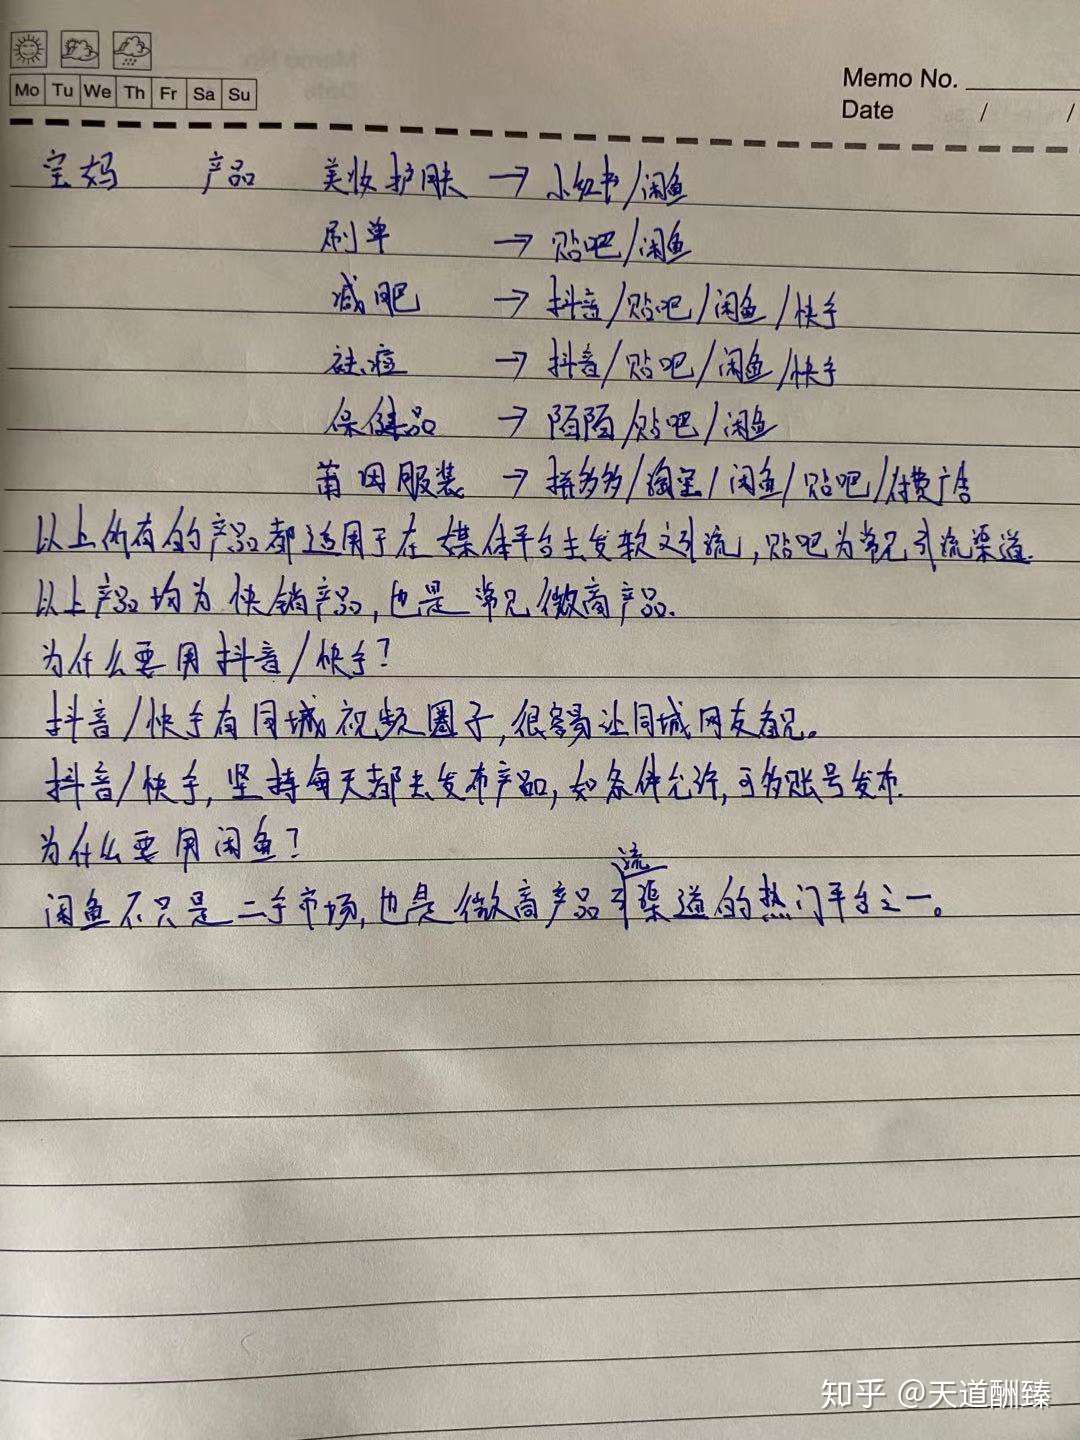 Mo Tu We Th Fr Sa Su
Memo No.
Date / /
宝妈 产品 美妆护肤 → 小红书/闲鱼
刷单 → 贴吧/闲鱼
减肥 → 抖音/贴吧/闲鱼/快手
祛痘 → 抖音/贴吧/闲鱼/快手
保健品 → 陌陌/贴吧/闲鱼
莆田服装 → 拼多多/淘宝/闲鱼/贴吧/付费广告
以上所有的产品都适用于在媒体平台去发软文引流,贴吧为常见引流渠道.
以上产品均为快销产品,也是常见微商产品.
为什么要用抖音/快手?
抖音/快手有同城视频圈子,很容易让同城网友看见。
抖音/快手,坚持每天都去发布产品,如条件允许,可多账号发布.
为什么要用闲鱼?
闲鱼不只是二手市场,也是微商产品引流渠道的热门平台之一。
知乎 @天道酬臻